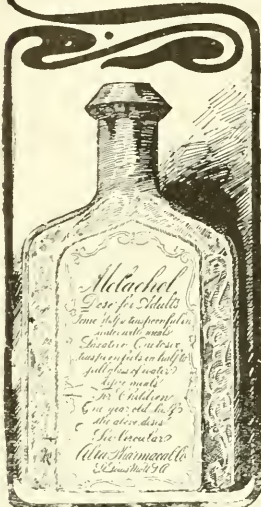 Melachol
Dose for Adults
teaspoonful in
water with meals
Laxative
teaspoonfuls in half to
full glass of water
before meals
For Children
one year old, half
the above dose
See Circular
Pharmacal Co
St. Louis